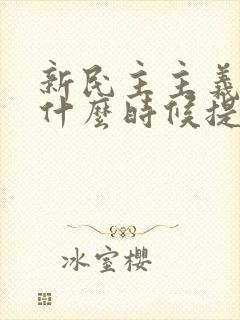 新民主主義
什麼時候提
冰室櫻